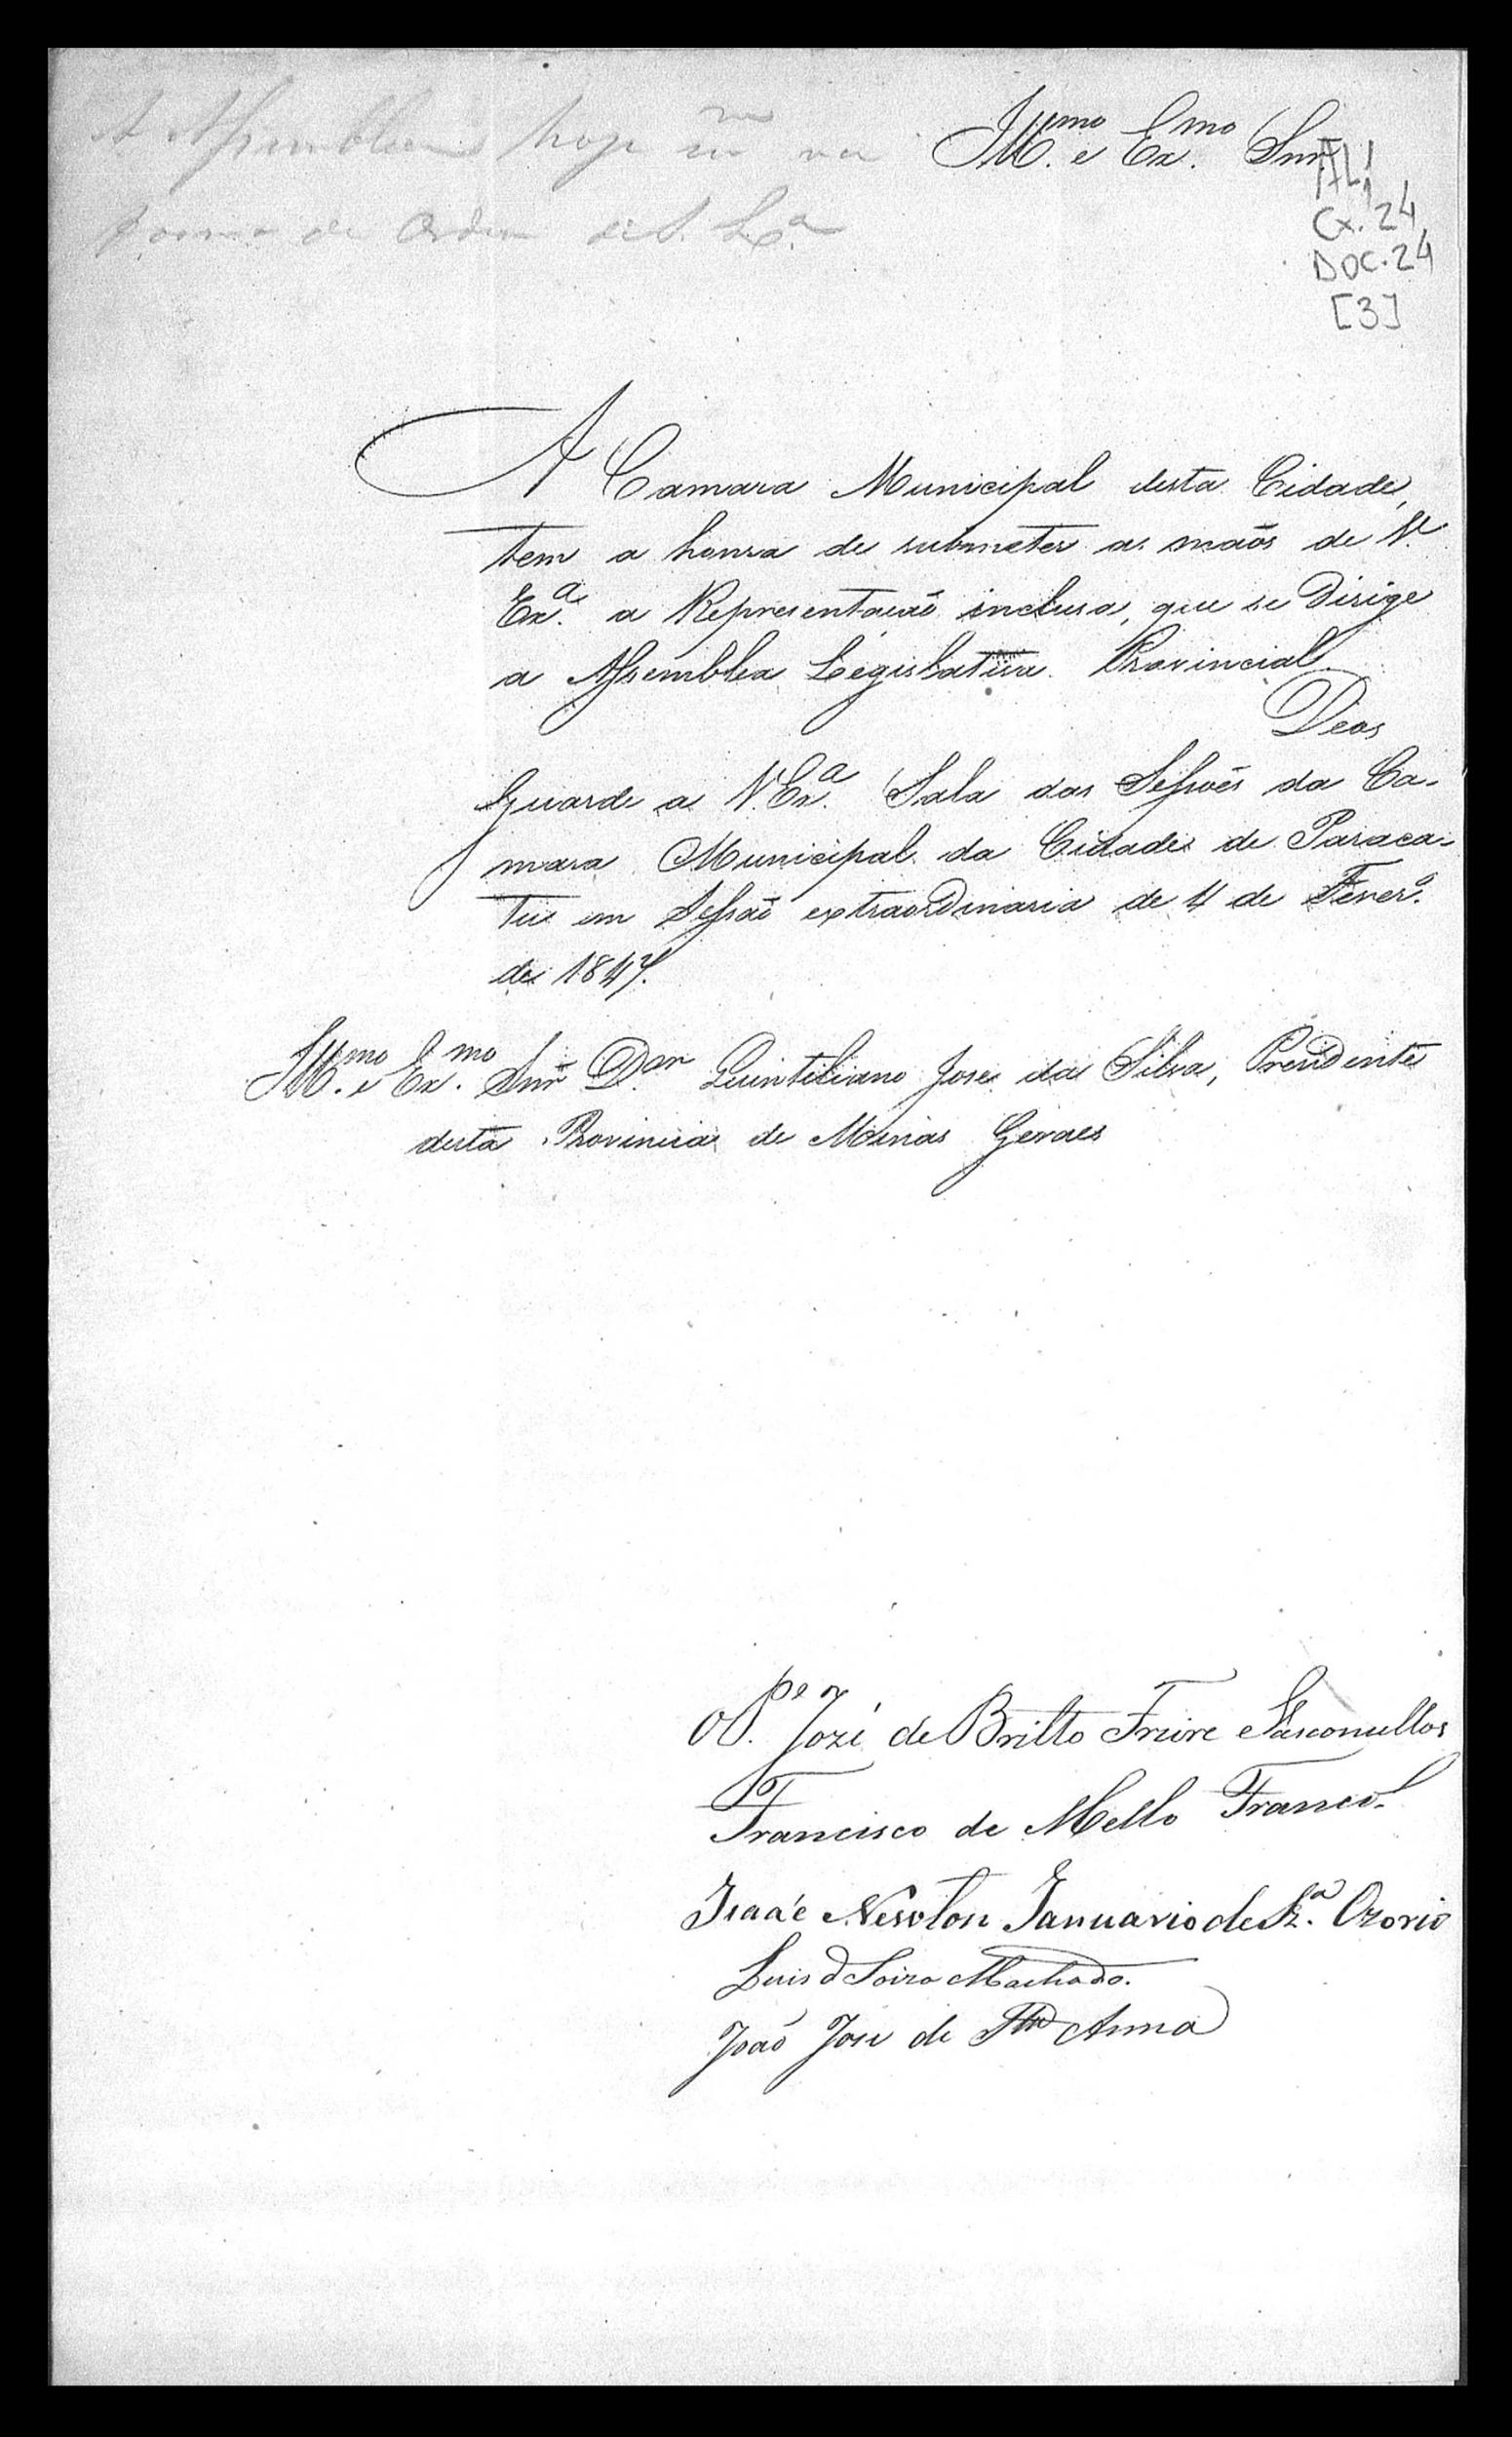 A Assemblea hoje
de Ordem de S. Ex.ª
Ill.mo e Ex.mo Snr.
AL1
Cx. 24
DOC. 24
[3]
A Camara Municipal desta Cidade,
tem a honra de submeter as maõs de V.
Ex.ª a Representacaõ inclusa, que se Dirige
a Assemblea Legislativa Provincial.
Deos
Guarde a V. Ex.ª Sala das Sessoẽs da Ca-
mara Municipal da Cidade de Paraca-
tu em Sessaõ extraordinaria de 4 de Fever.º
de 1847.
Ill.mo e Ex.mo Snr D.or Quintiliano Jose da Silva, Presidente
desta Provincia de Minas Geraes
O P.e Jozé de Britto Freire Vasconcellos
Francisco de Mello Franco
Isaác Newton Januario de Sz.ª Ozorio
Luis d Soiza Machado.
Joaõ Jose de Sta Anna